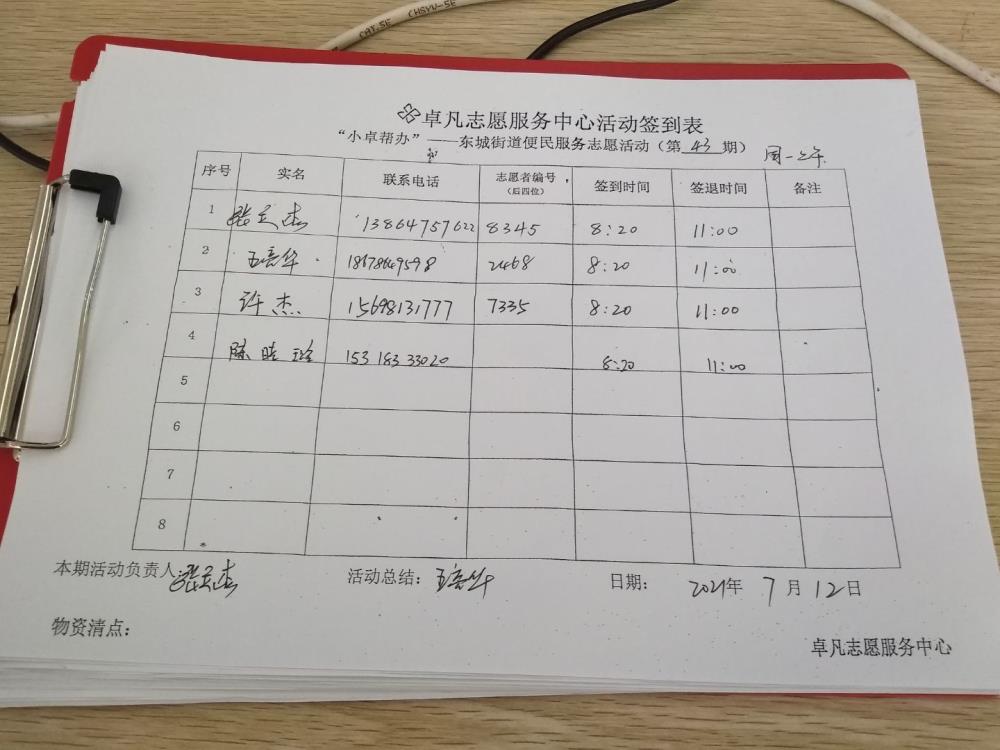 CAT.5E CHSYV-5E
卓凡志愿服务中心活动签到表
“小卓帮办”——东城街道便民服务志愿活动(第 43 期) 周一上午
序号 实名 联系电话 志愿者编号(后四位) 签到时间 签退时间 备注
1 张立杰 13864757622 8345 8:20 11:00
2 王培华 18678649598 2468 8:20 11:00
3 许杰 15698131777 7335 8:20 11:00
4 陈晓璐 15318333020 8:20 11:00
5
6
7
8
本期活动负责人:张立杰 活动总结:王培华 日期: 2021年 7月12日
物资清点:
卓凡志愿服务中心